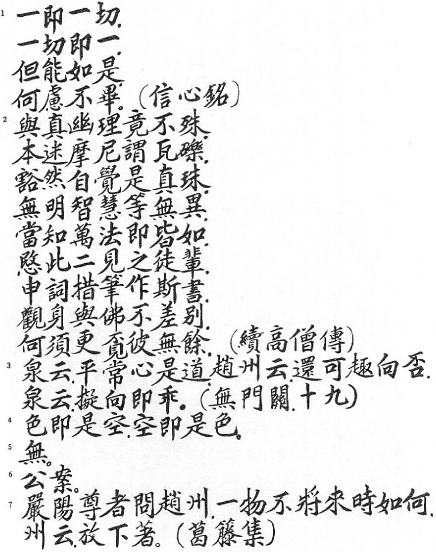 1 一即一切.
一切即一.
但能如是.
何慮不畢。(信心銘)
2 與真幽理竟不殊.
本迷摩尼謂瓦礫.
豁然自覺是真珠.
無明智慧等無異.
當知萬法即皆如.
愍此二見之徒輩.
申詞措筆作斯書.
觀身與佛不差別.
何須更覓彼無餘. (續高僧傳)
3 泉云.平常心是道.趙州云.還可趣向否.
泉云.擬向即乖。(無門關.十九)
4 色即是空.空即是色。
5 無。
6 公案。
7 嚴陽尊者問趙州.一物不將來時如何.
州云.放下著。(葛籐集)